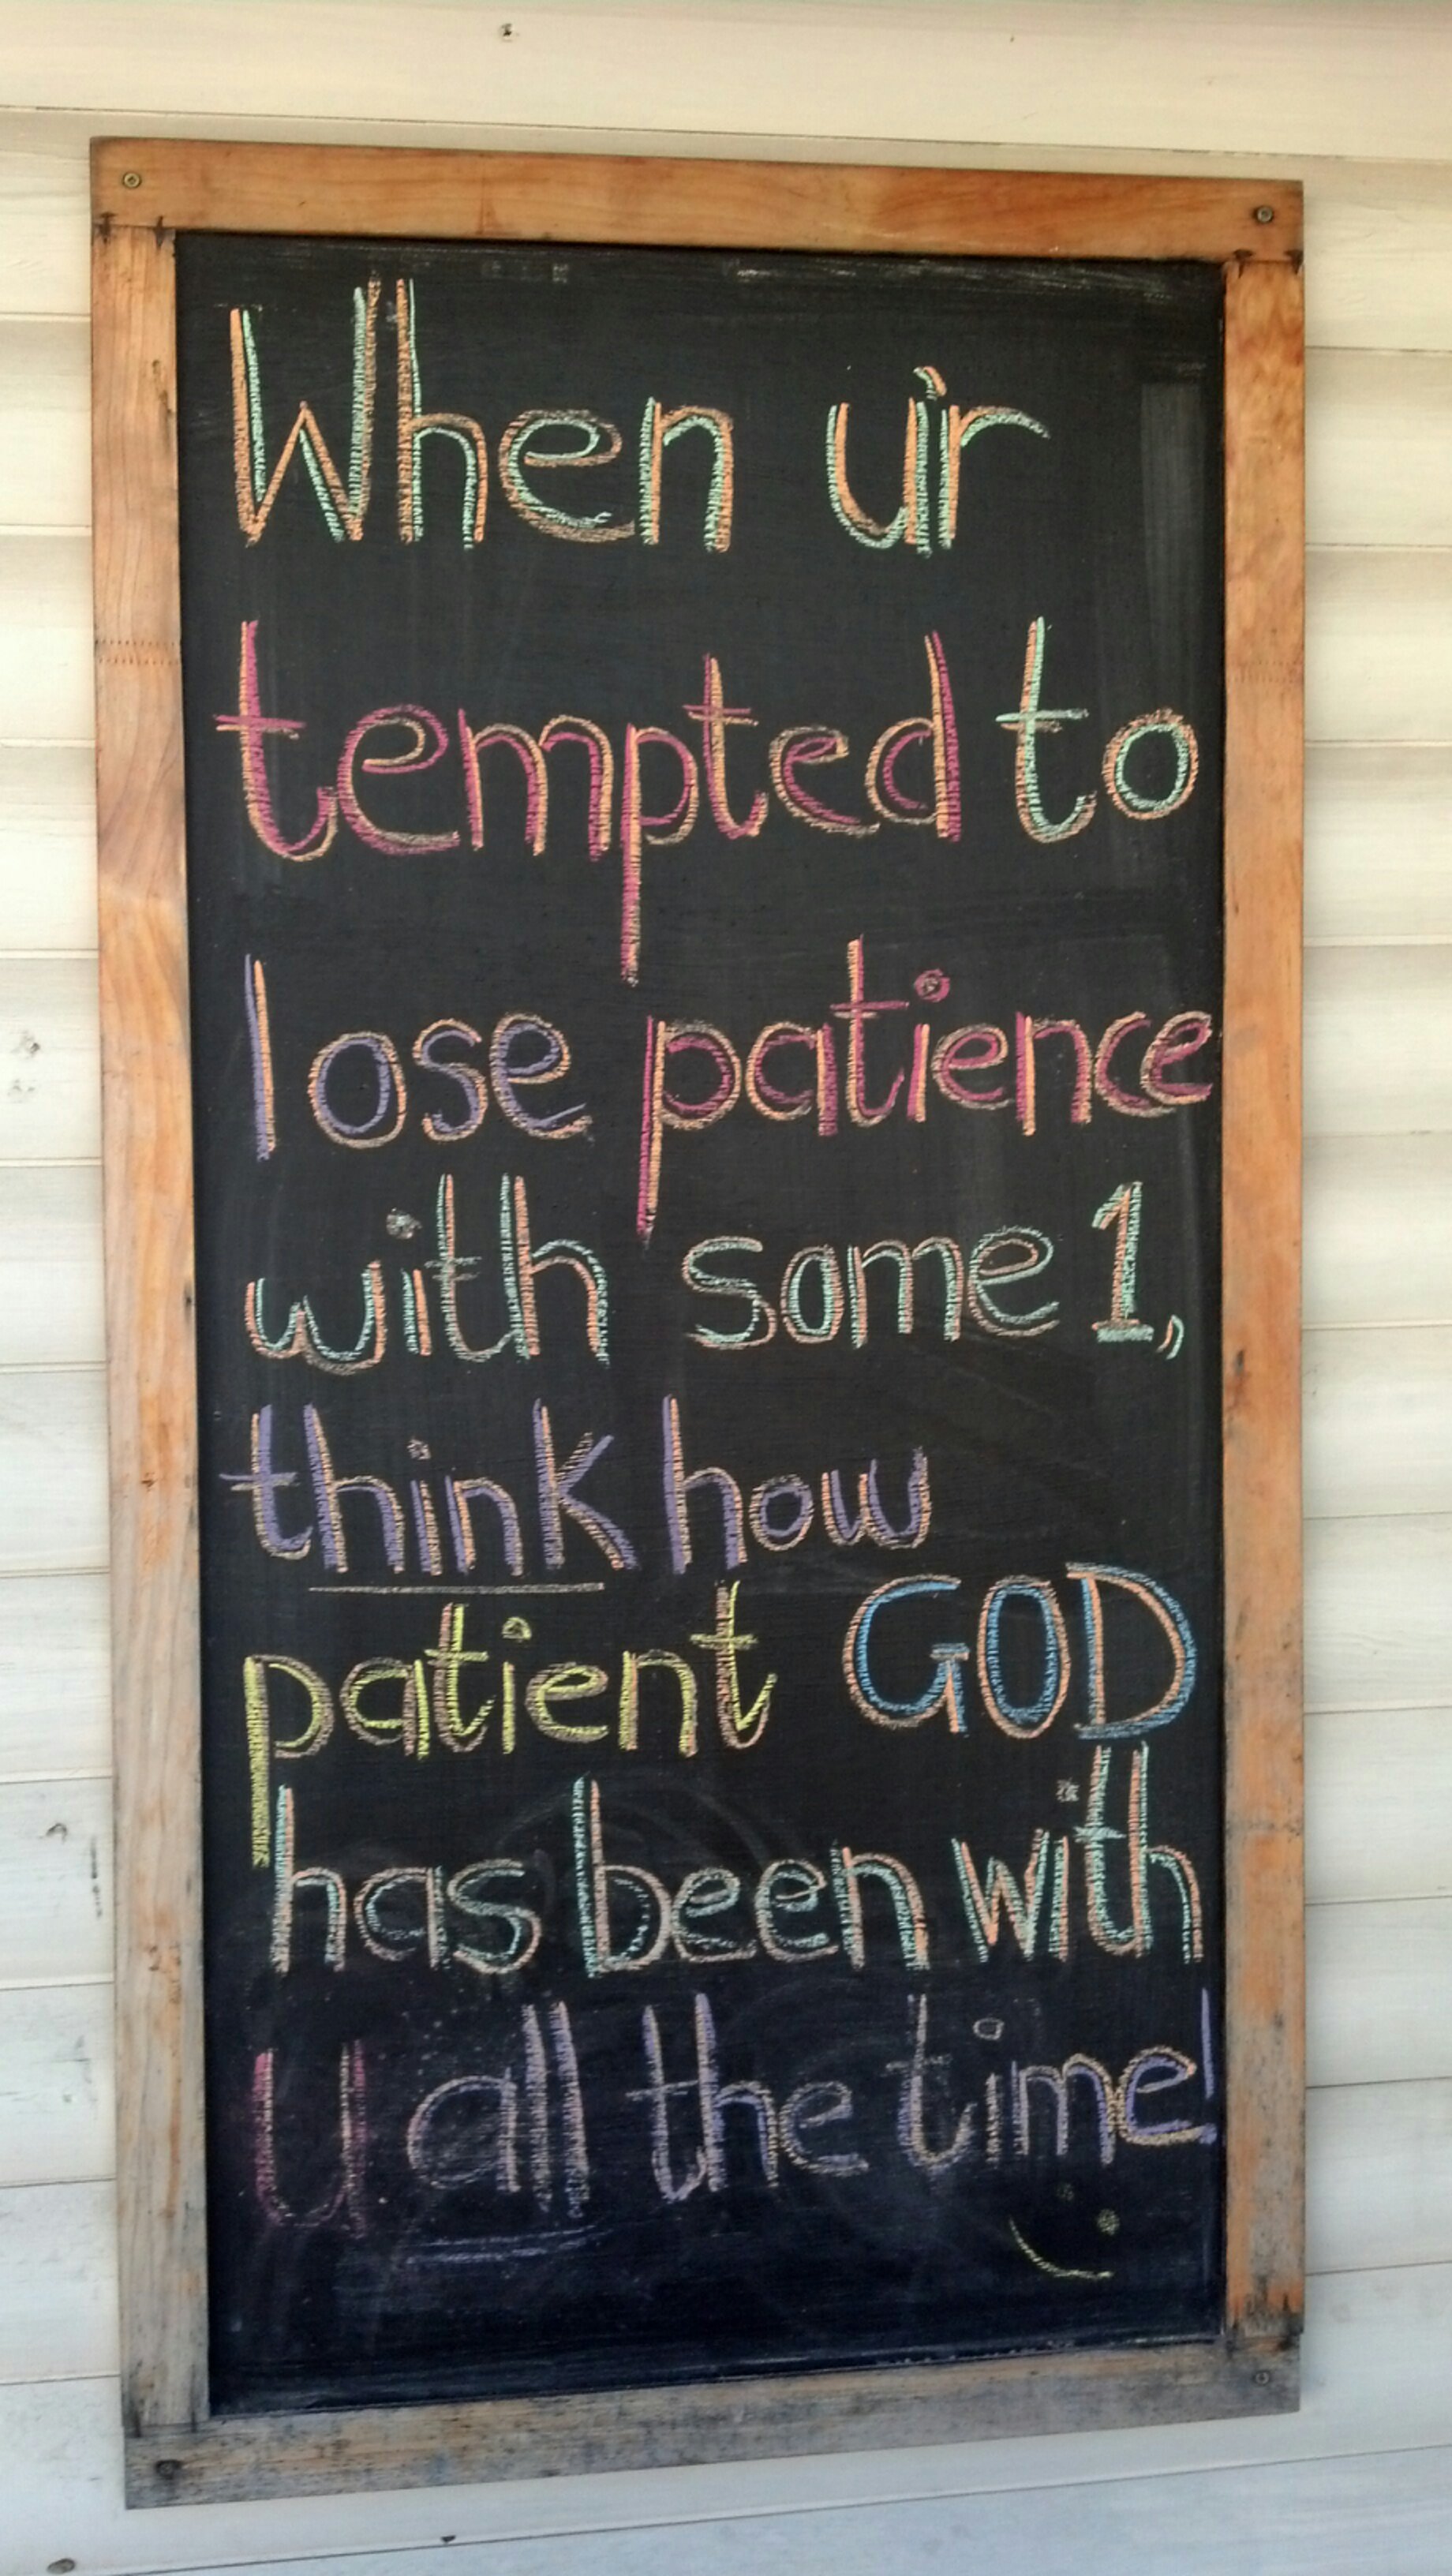 When u'r
tempted to
lose patience
with some 1,
think how
patient GOD
has been with
U all the time!